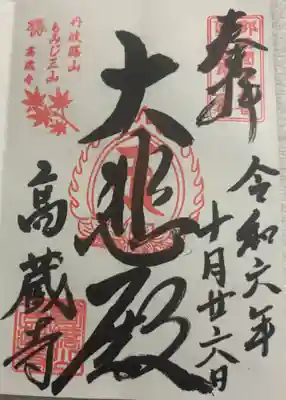 奉拝
令和六年
十月廿六日
大悲殿
高蔵寺
丹波篠山
もみじ三山
高蔵寺